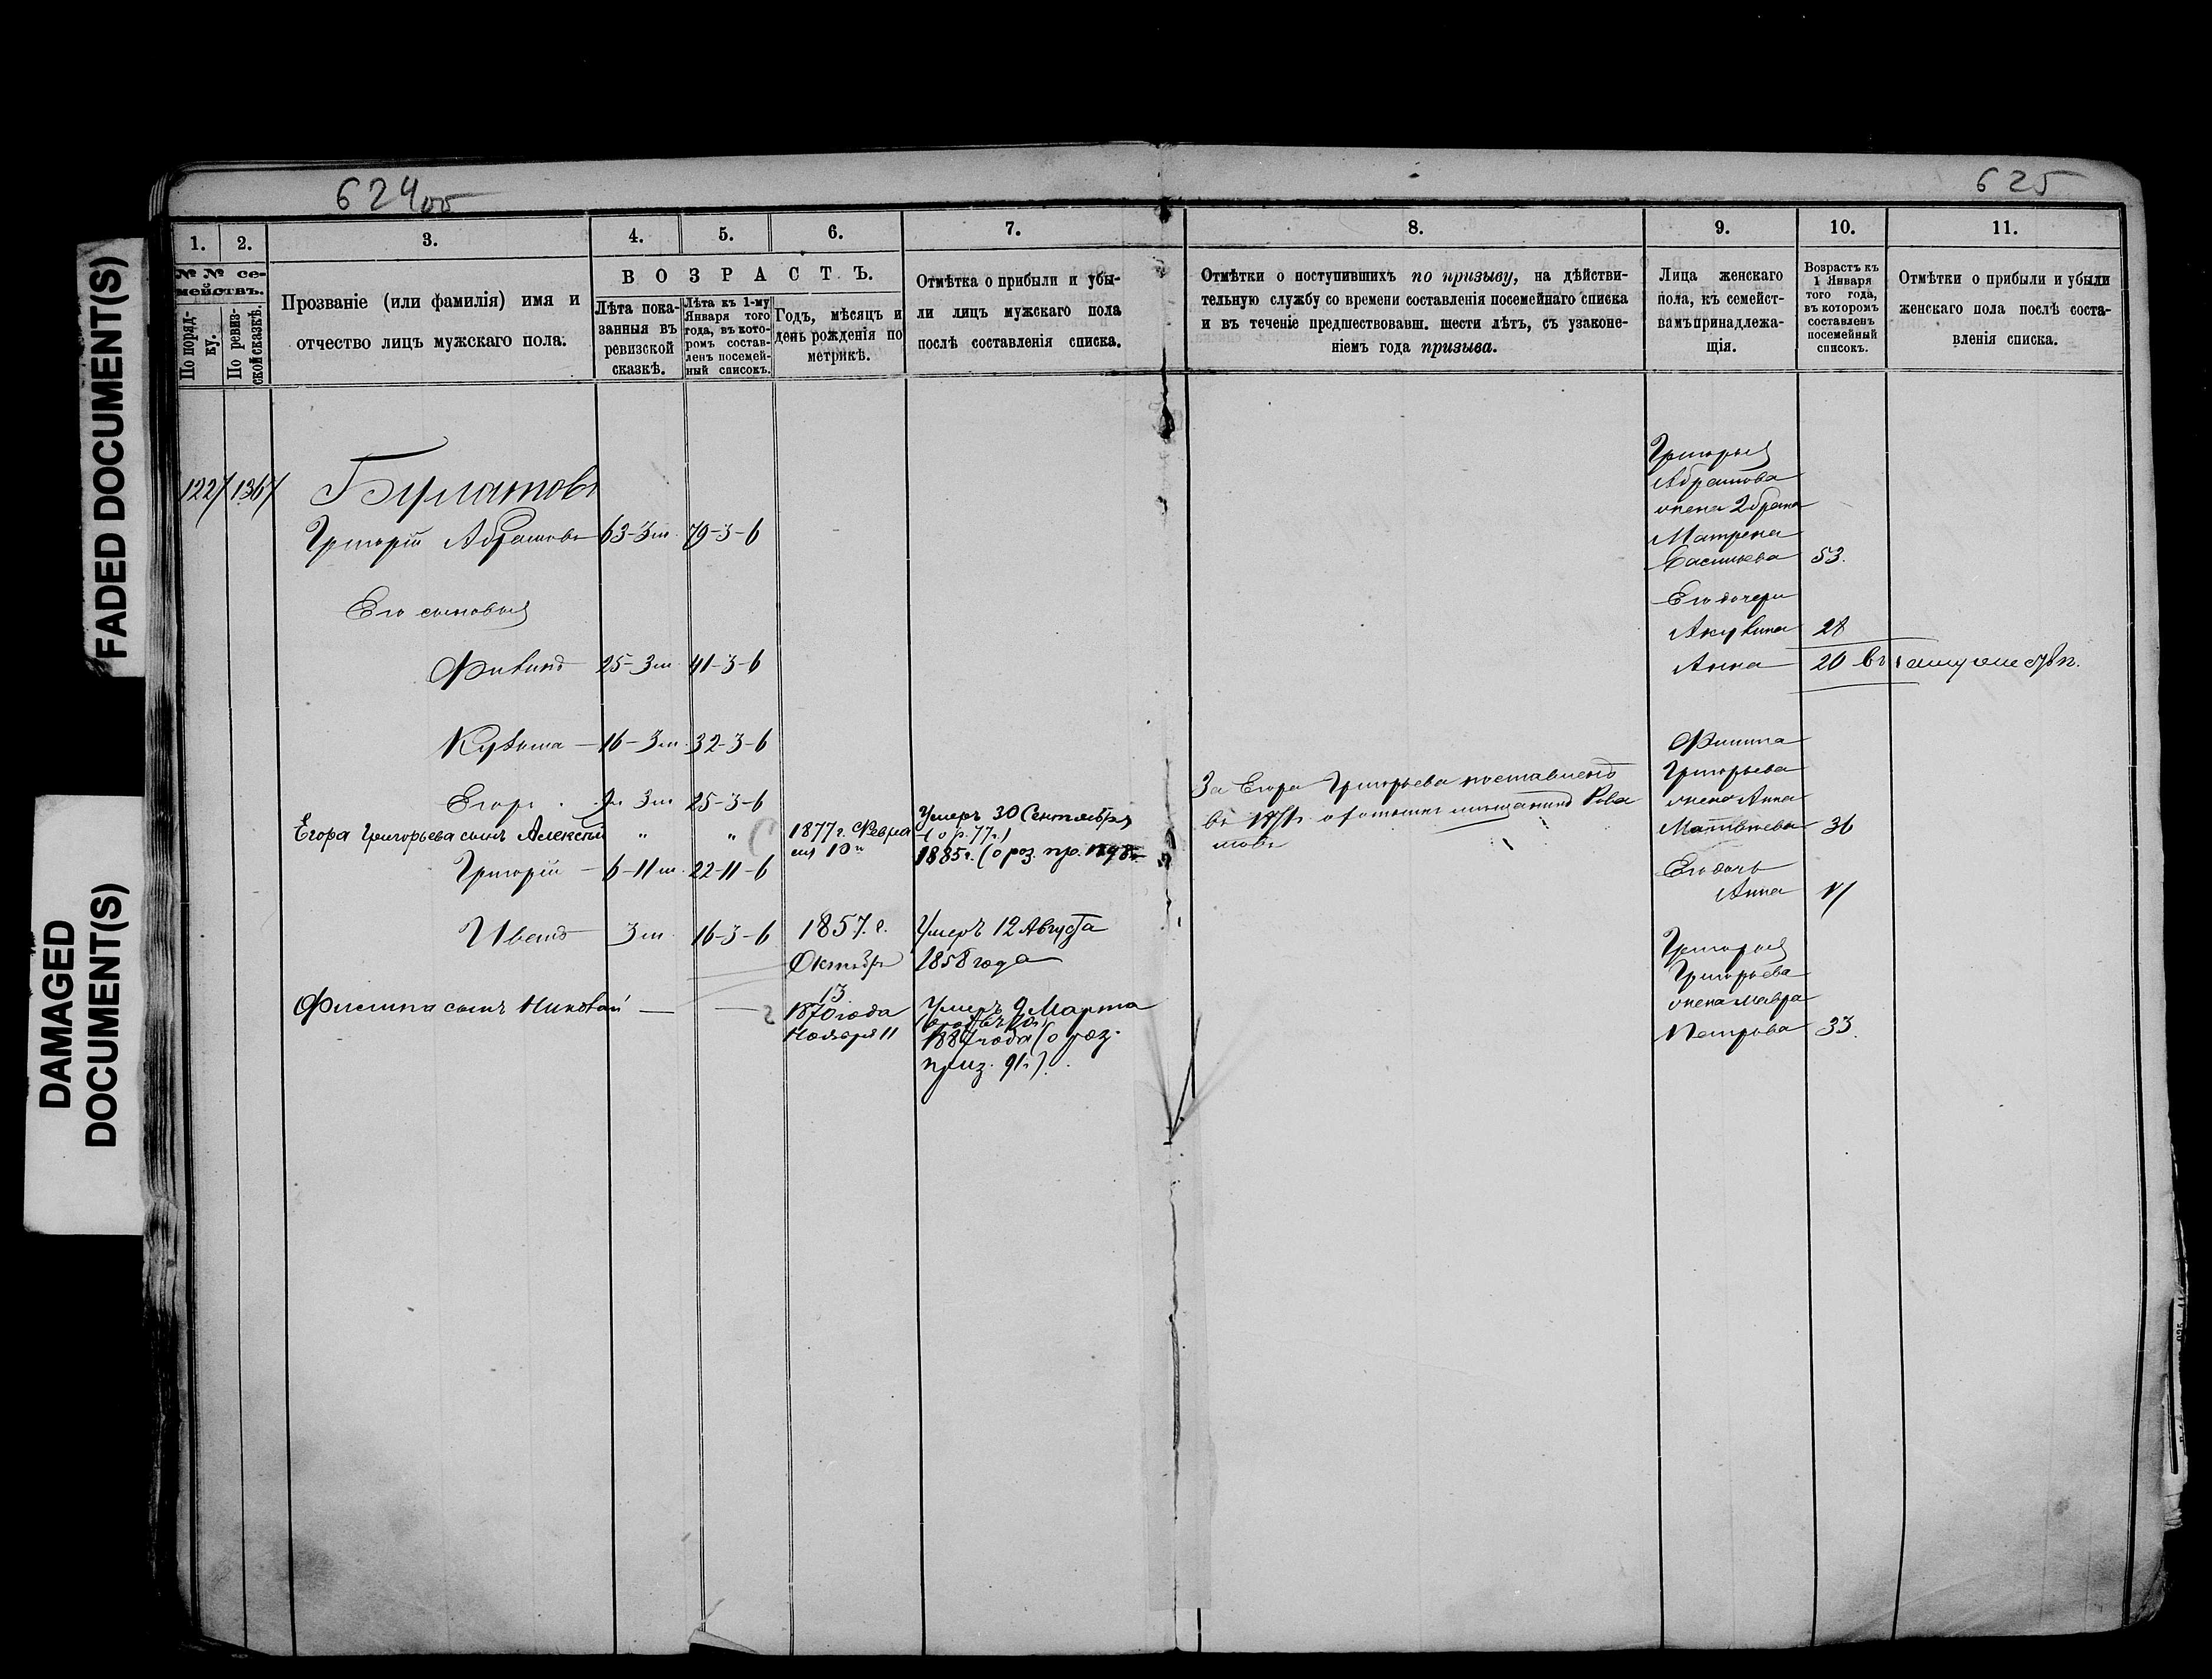 FADED DOCUMENT(S)
DAMAGED
DOCUMENT(S)
624об
625
1.
2.
3.
4.
5.
6.
7.
8.
9.
10.
11.
№ № се-
мействъ.
По поряд-
ку.
По ревиз-
ской сказкѣ.
Прозваніе (или фамилія) имя и
отчество лицъ мужскаго пола.
ВОЗРАСТЪ.
Лѣта пока-
занныя въ
ревизской
сказкѣ.
Лѣта къ 1-му
Января того
года, въ кото-
ромъ состав-
ленъ посемей-
ный списокъ.
Годъ, мѣсяцъ и
день рожденія по
метрикѣ.
Отмѣтка о прибыли и убы-
ли лицъ мужскаго пола
послѣ составленія списка.
Отмѣтки о поступившихъ по призыву, на дѣйстви-
тельную службу со времени составленія посемейнаго списка
и въ теченіе предшествовавш. шести лѣтъ, съ узаконе-
ніемъ года призыва.
Лица женскаго
пола, къ семейст-
вамъ принадлежа-
щія.
Возрастъ къ
1 Января
того года,
въ которомъ
составленъ
посемейный
списокъ.
Отмѣтки о прибыли и убыли
женскаго пола послѣ соста-
вленія списка.
1227 1367
Григорій Абрамовъ 63-3м. 79-3-6
Его сыновья
25-3м. 41-3-6
Кузьма 16-3м. 32-3-6
Егоръ 25-3-6
Егора Григорьева сынъ Алексѣй " "
1877 г. Февра
ля 10
Умеръ 30 Сентября
(о р. 77 г.)
1885 г. (о роз. пр.
Григорій 6-11м. 22-11-6
Иванъ 3м. 16-3-6
1857 г.
Октября
13
Умеръ 12 Августа
1858 года
Филиппа сынъ Николай — —
1870 года
Ноября 11
Умеръ 9 Марта
года (о роз.
приз. 91 г.).
За Егора Григорьева поставленъ
въ
Григорья
Абрамова
жена 2 брака
Матрена
Васильева 53.
Его дочери
Акулина 28
Анна 20
Филиппа
Григорьева
жена Анна
Матвѣева 36
Его дочь
Анна
Григорья
Григорьева
жена Мавра
Петрова 33.